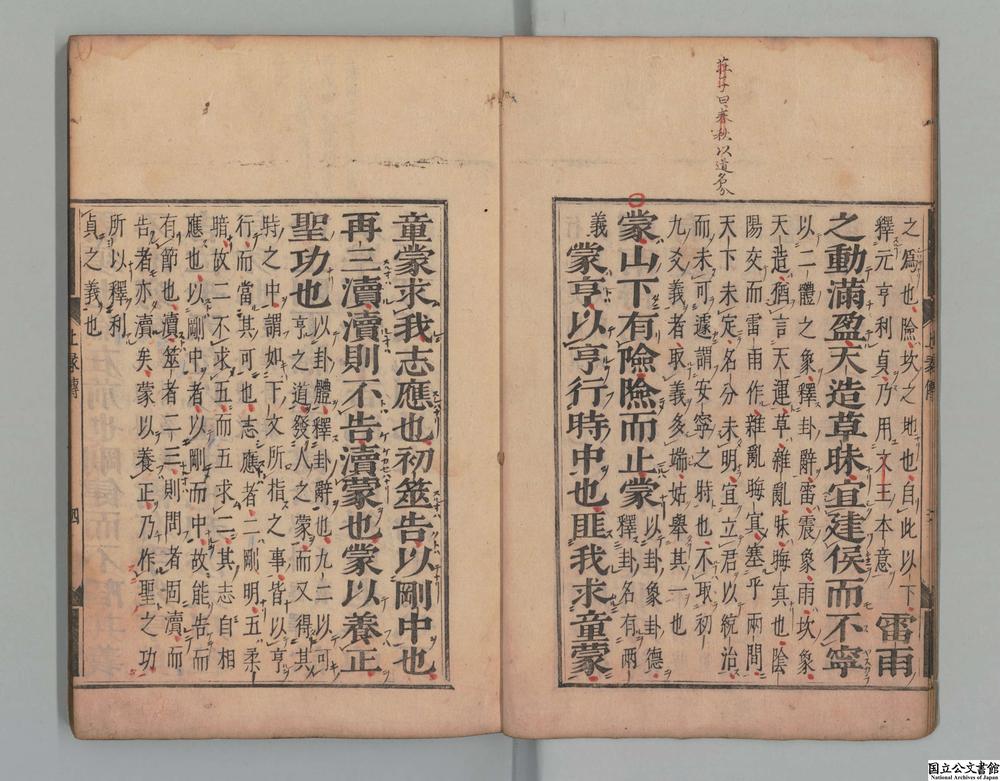 之爲也險坎之地也自此以下
釋元亨利貞乃用文王本意
雷雨
之動滿盈天造草昧宜建侯而不寧
以二體之象釋卦辭雷震象雨坎象
天造猶言天運草雜亂昧晦冥也陰
陽交而雷雨作雜亂晦冥塞乎兩間
天下未定名分未明宜立君以統治
而未可遽謂安寧之時也不取初
九爻義者取義多端姑舉其一也
蒙山下有險險而止蒙
以卦象卦德
釋卦名有兩
義
蒙亨以亨行時中也匪我求童蒙
童蒙求我志應也初筮告以剛中也
再三瀆瀆則不告瀆蒙也蒙以養正
聖功也
以卦體釋卦辭也九二以可
亨之道發人之蒙而又得其
時之中謂如下文所指之事皆以亨
行而當其可也志應者二剛明五柔
暗故二不求五而五求二其志自相
應也以剛中者以剛而中故能告而
有節也瀆筮者二三則問者固瀆而
告者亦瀆矣蒙以養正乃作聖之功
所以釋利
貞之義也
曰春秋以道名
上彖傳
四
国立公文書館
National Archives of Japan